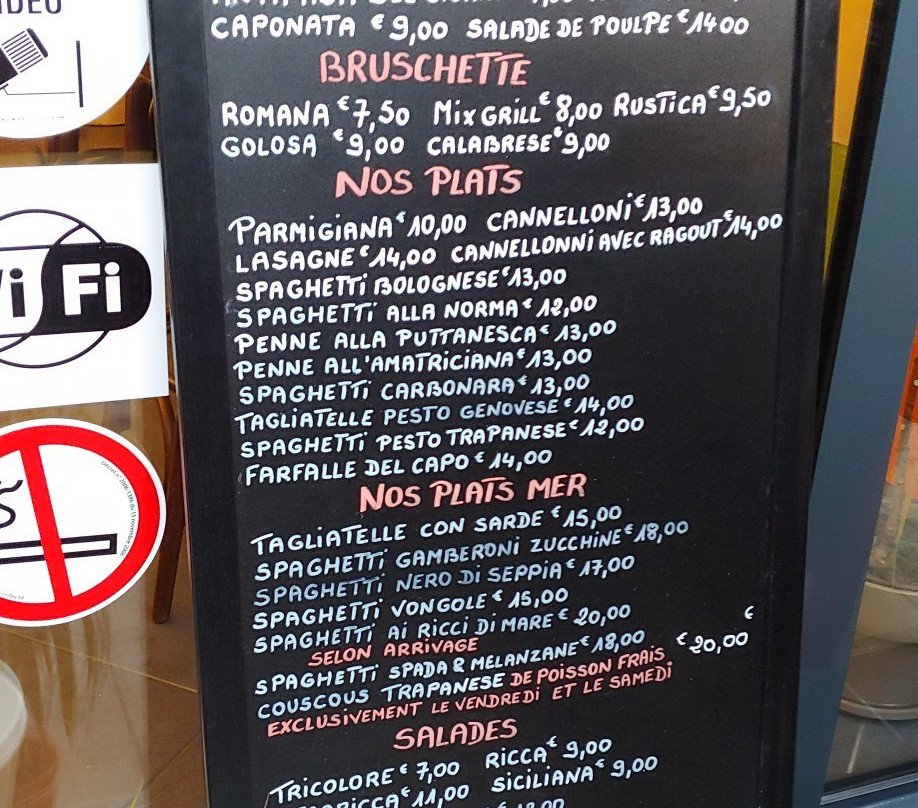 IDEO
CAPONATA € 9,00 SALADE DE POULPE € 14 00
BRUSCHETTE
ROMANA € 7,50 MIX GRILL € 8,00 RUSTICA € 9,50
GOLOSA € 9,00 CALABRESE € 9,00
NOS PLATS
PARMIGIANA € 10,00 CANNELLONI € 13,00
LASAGNE € 14,00 CANNELLONNI AVEC RAGOUT € 14,00
SPAGHETTI BOLOGNESE € 13,00
SPAGHETTI ALLA NORMA € 12,00
PENNE ALLA PUTTANESCA € 13,00
PENNE ALL'AMATRICIANA € 13,00
SPAGHETTI CARBONARA € 13,00
TAGLIATELLE PESTO GENOVESE € 14,00
SPAGHETTI PESTO TRAPANESE € 12,00
FARFALLE DEL CAPO € 14,00
NOS PLATS MER
TAGLIATELLE CON SARDE € 15,00
SPAGHETTI GAMBERONI ZUCCHINE € 18,00
SPAGHETTI NERO DI SEPPIA € 17,00
SPAGHETTI VONGOLE € 15,00
SPAGHETTI AI RICCI DI MARE € 20,00
SELON ARRIVAGE
SPAGHETTI SPADA & MELANZANE € 18,00
COUSCOUS TRAPANESE DE POISSON FRAIS € 20,00 €
EXCLUSIVEMENT LE VENDREDI ET LE SAMEDI
SALADES
TRICOLORE € 7,00 RICCA € 9,00
€ 11,00 SICILIANA € 9,00
Fi